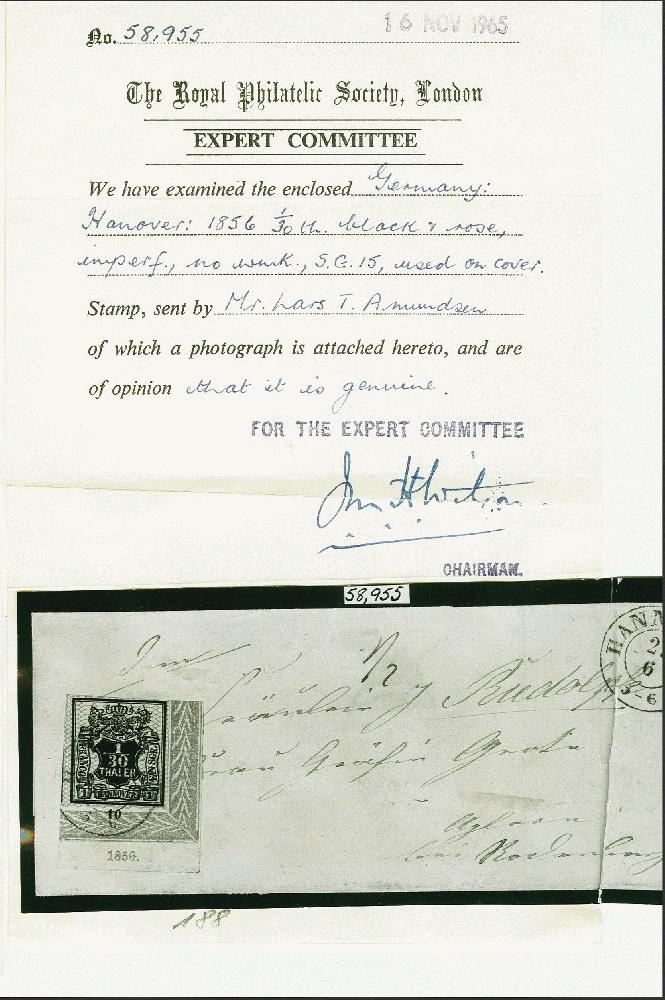 No. 58,955
16 NOV 1965
The Royal Philatelic Society, London
EXPERT COMMITTEE
We have examined the enclosed Germany:
Hanover: 1856 1/30 th. black & rose,
imperf., no wmk., S.G. 15, used on cover.
Stamp, sent by Mr. Lars T. Amundsen
of which a photograph is attached hereto, and are
of opinion that it is genuine.
FOR THE EXPERT COMMITTEE
CHAIRMAN.
58,955
HANN
2
6
6
Rudolph
1
30
THALER
HANNOVER
10
6
1856.
188